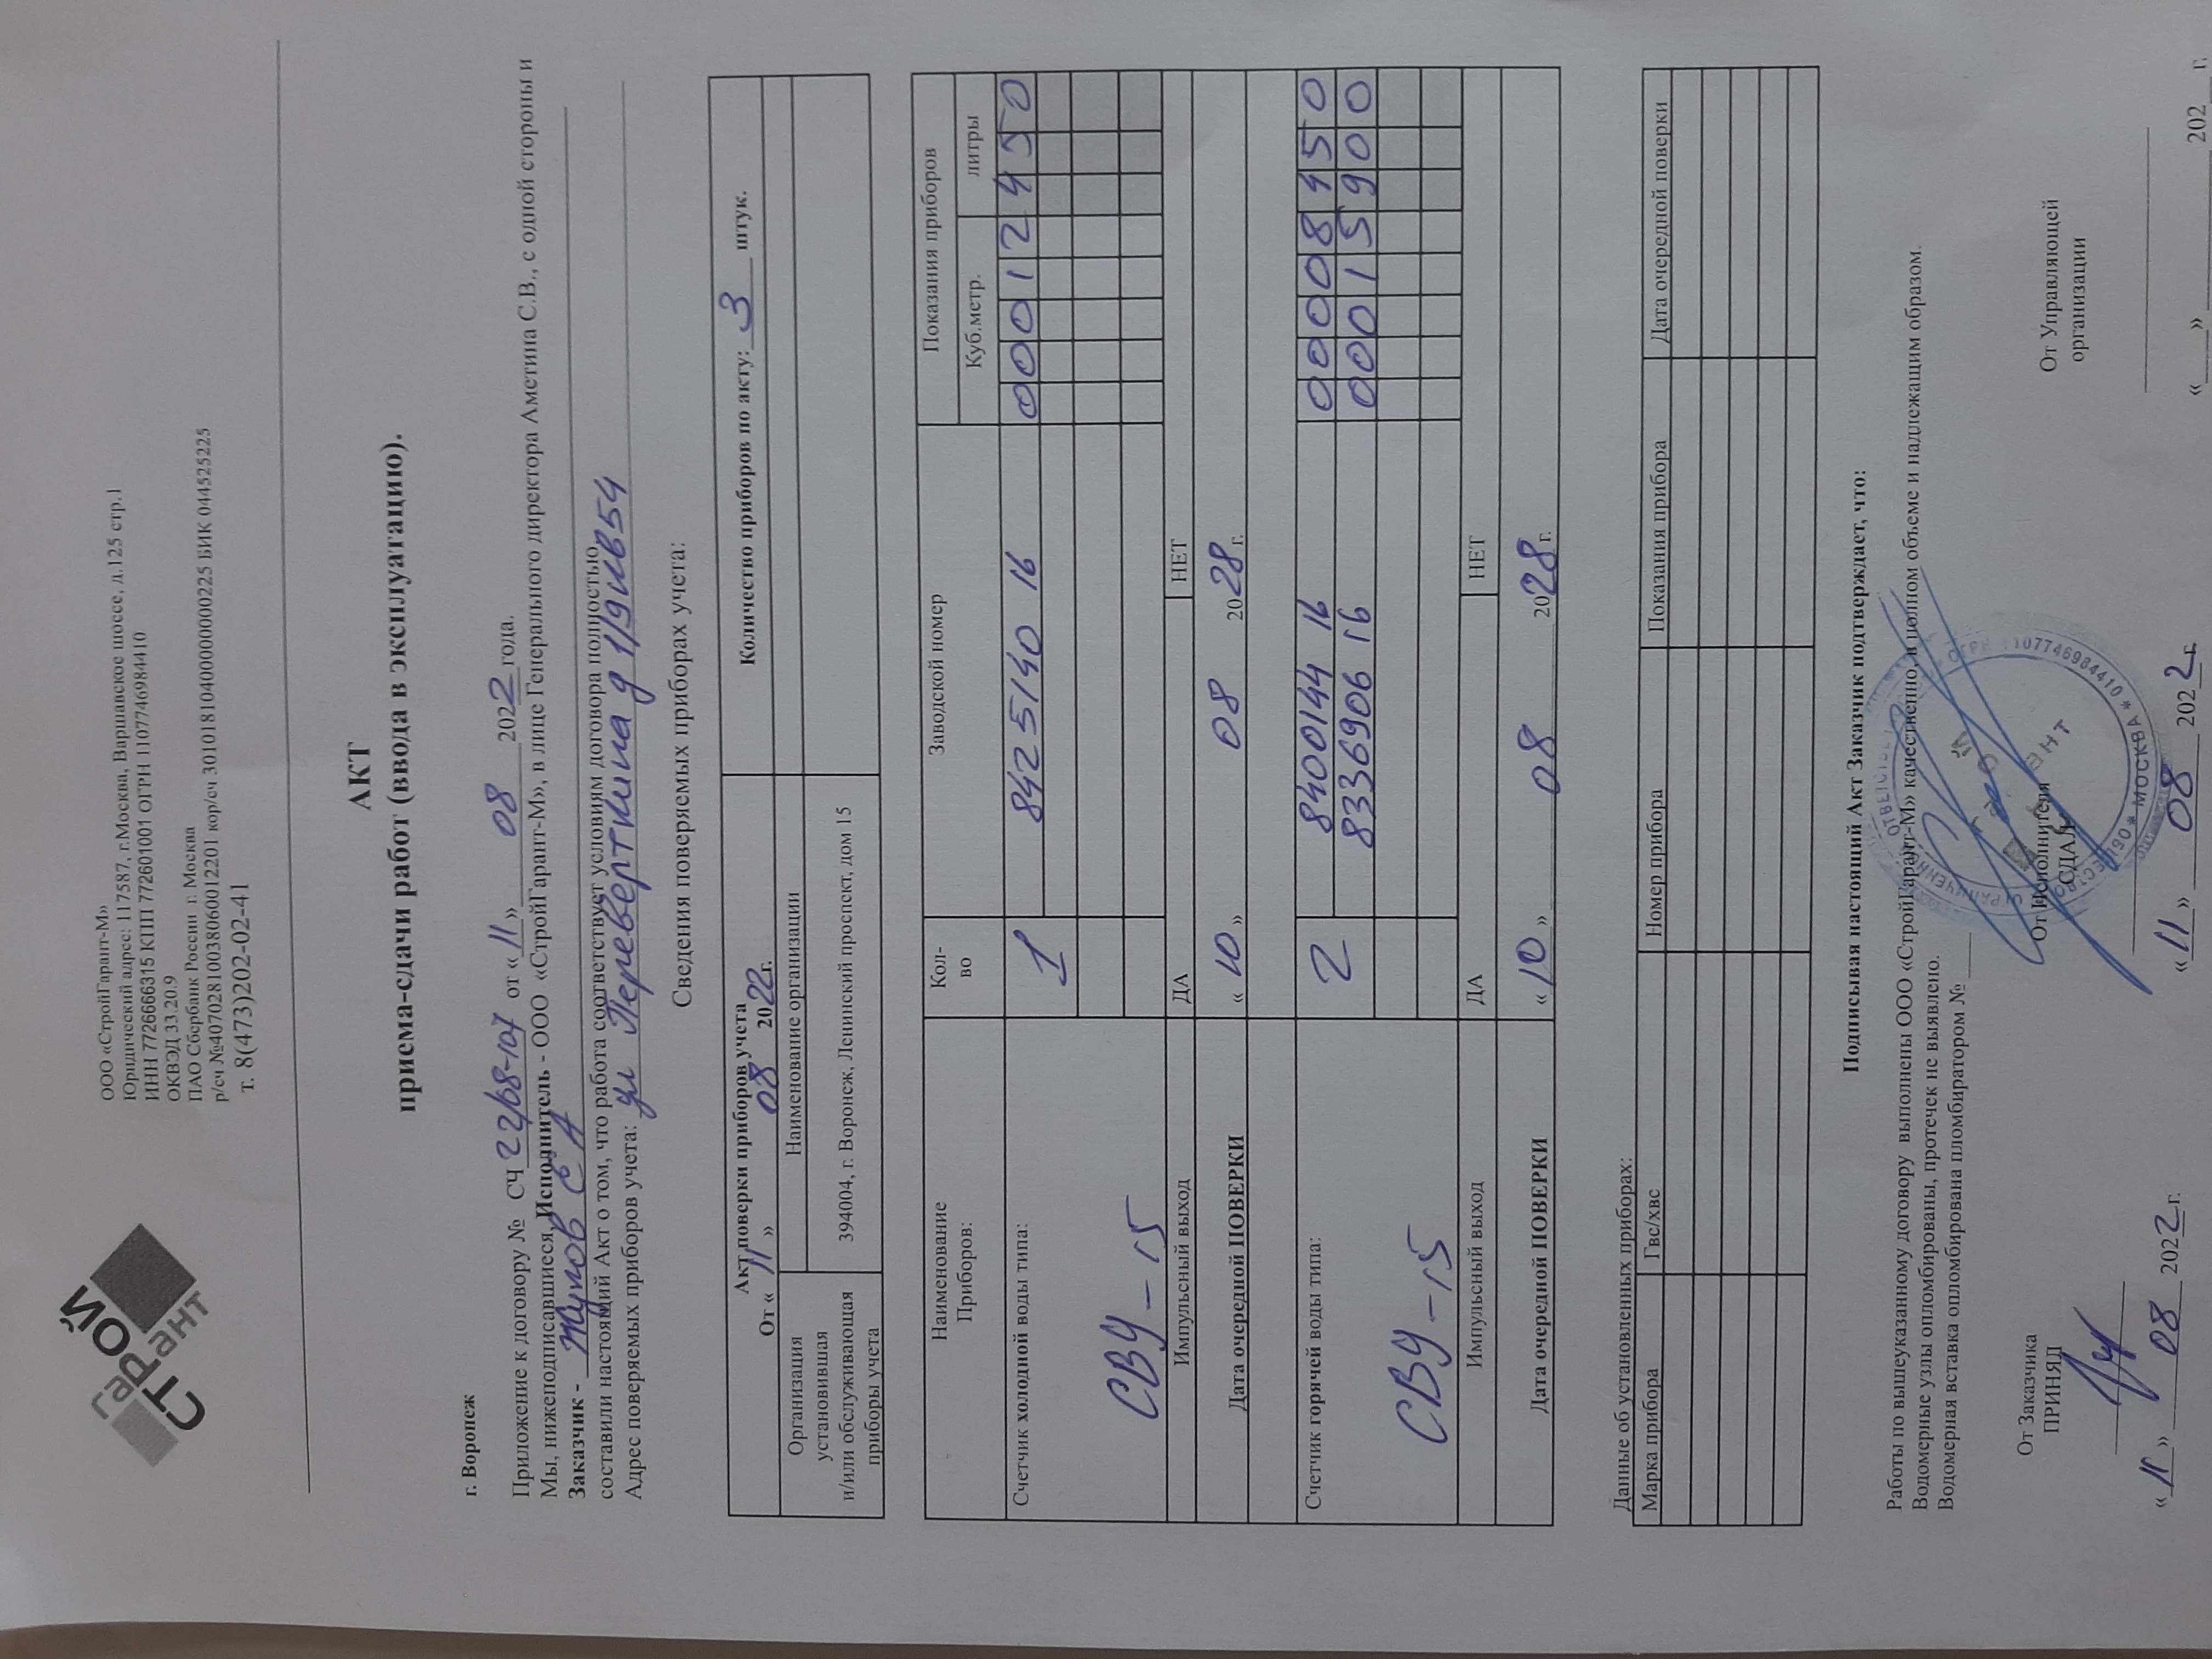 СТРОЙ
гарант
ООО «СтройГарант-М»
Юридический адрес: 117587, г.Москва, Варшавское шоссе, д.125 стр.1
ИНН 7726666315 КПП 772601001 ОГРН 1107746984410
ОКВЭД 33.20.9
ПАО Сбербанк России г. Москва
р/сч №40702810038060012201 кор/сч 30101810400000000225 БИК 044525225
т. 8(473)202-02-41
АКТ
приема-сдачи работ (ввода в эксплуатацию).
г. Воронеж
Приложение к договору № СЧ 22/08-107 от «11» 08 2022 года.
Мы, нижеподписавшиеся, Исполнитель - ООО «СтройГарант-М», в лице Генерального директора Аметина С.В., с одной стороны и
Заказчик - Жулов Е А
составили настоящий Акт о том, что работа соответствует условиям договора полностью.
Адрес поверяемых приборов учета: ул Переверткина д 1/9 кв 54
Сведения поверяемых приборах учета:
Акт поверки приборов учета
От « 11 » 08 2022г.
Количество приборов по акту: 3 штук.
Организация установившая и/или обслуживающая приборы учета
Наименование организации
394004, г. Воронеж, Ленинский проспект, дом 15
Наименование Приборов:
Кол-во
Заводской номер
Показания приборов
Куб.метр. литры
Счетчик холодной воды типа:
1 8425140 16 00012450
СВУ-15
Импульсный выход ДА НЕТ
Дата очередной ПОВЕРКИ « 10 » 08 2028 г.
Счетчик горячей воды типа:
2 8400144 16 00008450
8336906 16 00015900
СВУ-15
Импульсный выход ДА НЕТ
Дата очередной ПОВЕРКИ « 10 » 08 2028 г.
Данные об установленных приборах:
Марка прибора Гвс/хвс Номер прибора Показания прибора Дата очередной поверки
Подписывая настоящий Акт Заказчик подтверждает, что:
Работы по вышеуказанному договору выполнены ООО «СтройГарант-М» качественно, в полном объеме и надлежащим образом.
Водомерные узлы опломбированы, протечек не выявлено.
Водомерная вставка опломбирована пломбиратором № ____
От Заказчика
ПРИНЯЛ
От Исполнителя
СДАЛ
От Управляющей
организации
* МОСКВА *
«11» 08 2022г.
«11» 08 2022г.
«____» 202__ г.